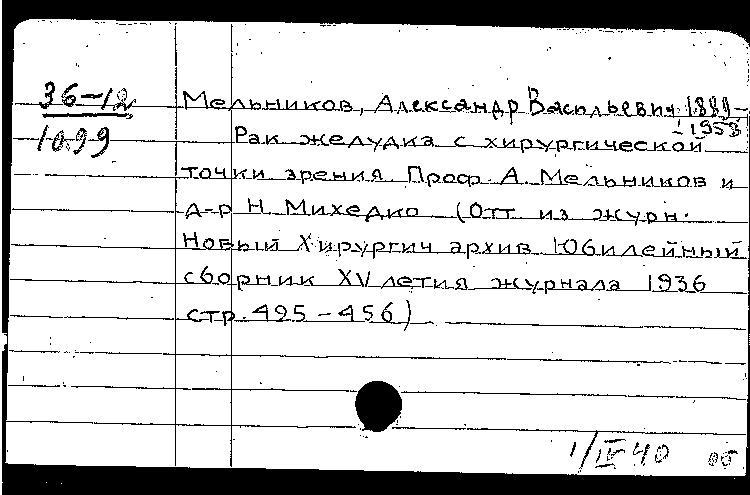 36-12
1099
Мельников, Александр Васильевич 1889-
-1958
Рак желудка с хирургической
точки зрения. Проф. А. Мельников и
д-р Н. Михедко (Отт. из журн.
Новый Хирургич архив Юбилейный
сборник XV летия журнала 1936
стр. 425-456)
1/IV 40